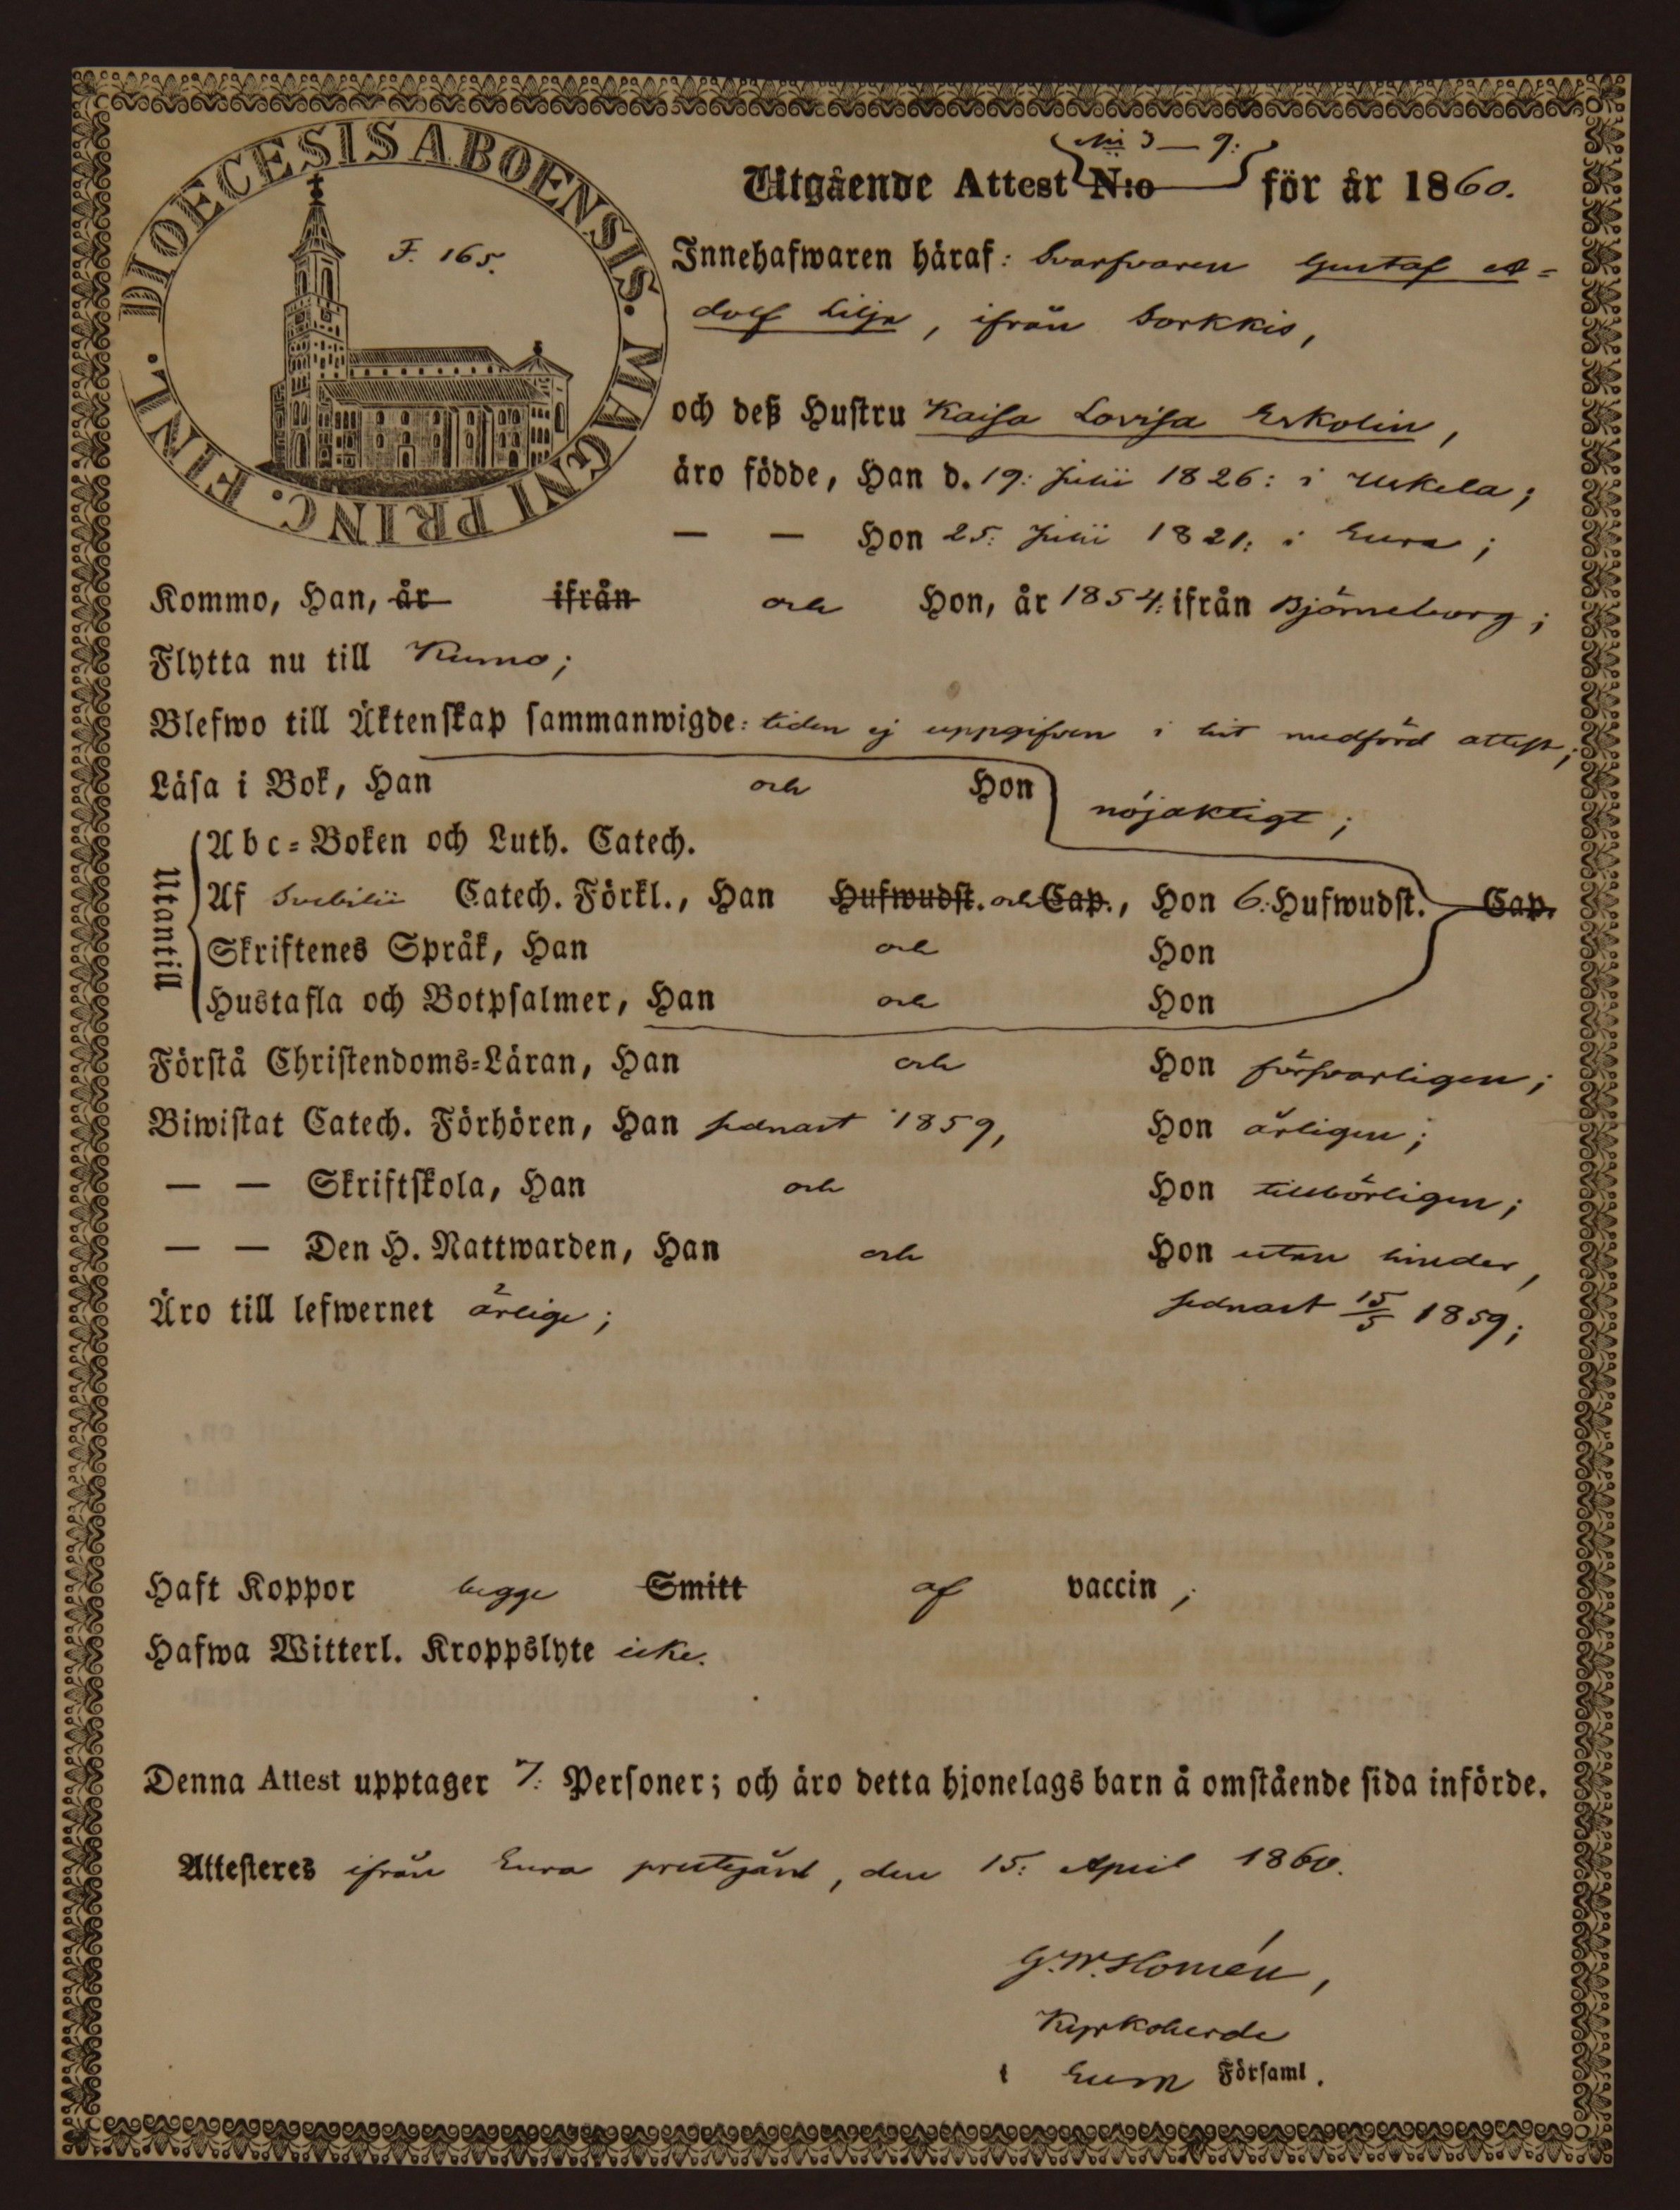 DIOECESIS ABOENSIS. MAGNI PRINC. FINL.
F. 165.
N:is 3 — 9:
Utgående Attest N:o för år 1860.
Innehafwaren häraf: Svarfvaren Gustaf A-
dolf Lilja, ifrån Sorkkis,
och deß Hustru Kaisa Lovisa Erkolin,
äro födde, Han d. 19: Julii 1826: i Uskela;
— — Hon 25: Julii 1821: i Eura;
Kommo, Han, år ifrån och Hon, år 1854: ifrån Björneborg;
Flytta nu till Kumo;
Blefwo till Äktenskap sammanwigde: tiden ej uppgifven i hit medförd attest;
Läsa i Bok, Han och Hon nöjaktigt;
Utantill
Abc-Boken och Luth. Catech.
Af Svebilii Catech. Förkl., Han Hufwudst. och Cap., Hon 6: Hufwudst. Cap.
Skriftenes Språk, Han och Hon
Hustafla och Botpsalmer, Han och Hon
Förstå Christendoms-Läran, Han och Hon försvarligen;
Biwistat Catech. Förhören, Han sednast 1859, Hon årligen;
— — Skriftskola, Han och Hon tillbörligen;
— — Den H. Nattwarden, Han och Hon utan hinder,
Äro till lefwernet ärlige; sednast 15/5 1859;
Haft Koppor begge Smitt af vaccin;
Hafwa Witterl. Kroppslyte icke.
Denna Attest upptager 7: Personer; och äro detta hjonelags barn å omstående sida införde.
Attesteres ifrån Eura prestgård, den 15: April 1860.
G. W. Homén,
Kyrkoherde
i Eura Församl.